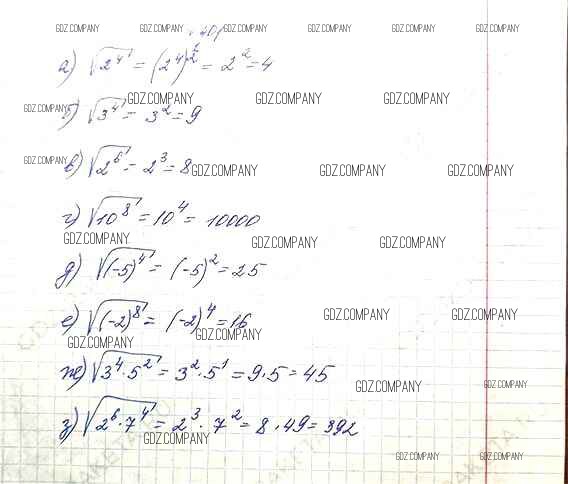 GDZ.COMPANY GDZ.COMPANY GDZ.COMPANY GDZ.COMPANY GDZ.COMPANY GDZ.COMPANY
а) √2⁴ = (2⁴)^½ = 2² = 4
GDZ.COMPANY GDZ.COMPANY GDZ.COMPANY GDZ.COMPANY
б) √3⁴ = 3² = 9
GDZ.COMPANY
в) √2⁶ = 2³ = 8
GDZ.COMPANY GDZ.COMPANY GDZ.COMPANY
г) √10⁸ = 10⁴ = 10000
GDZ.COMPANY GDZ.COMPANY GDZ.COMPANY
д) √(-5)⁴ = (-5)² = 25
е) √(-2)⁸ = (-2)⁴ = 16
GDZ.COMPANY GDZ.COMPANY
GDZ.COMPANY GDZ.COMPANY
ж) √3⁴·5² = 3²·5¹ = 9·5 = 45
GDZ.COMPANY GDZ.COMPANY
з) √2⁶·7⁴ = 2³·7² = 8·49 = 392
GDZ.COMPANY
GDZ.COMPANY GDZ.COMPANY